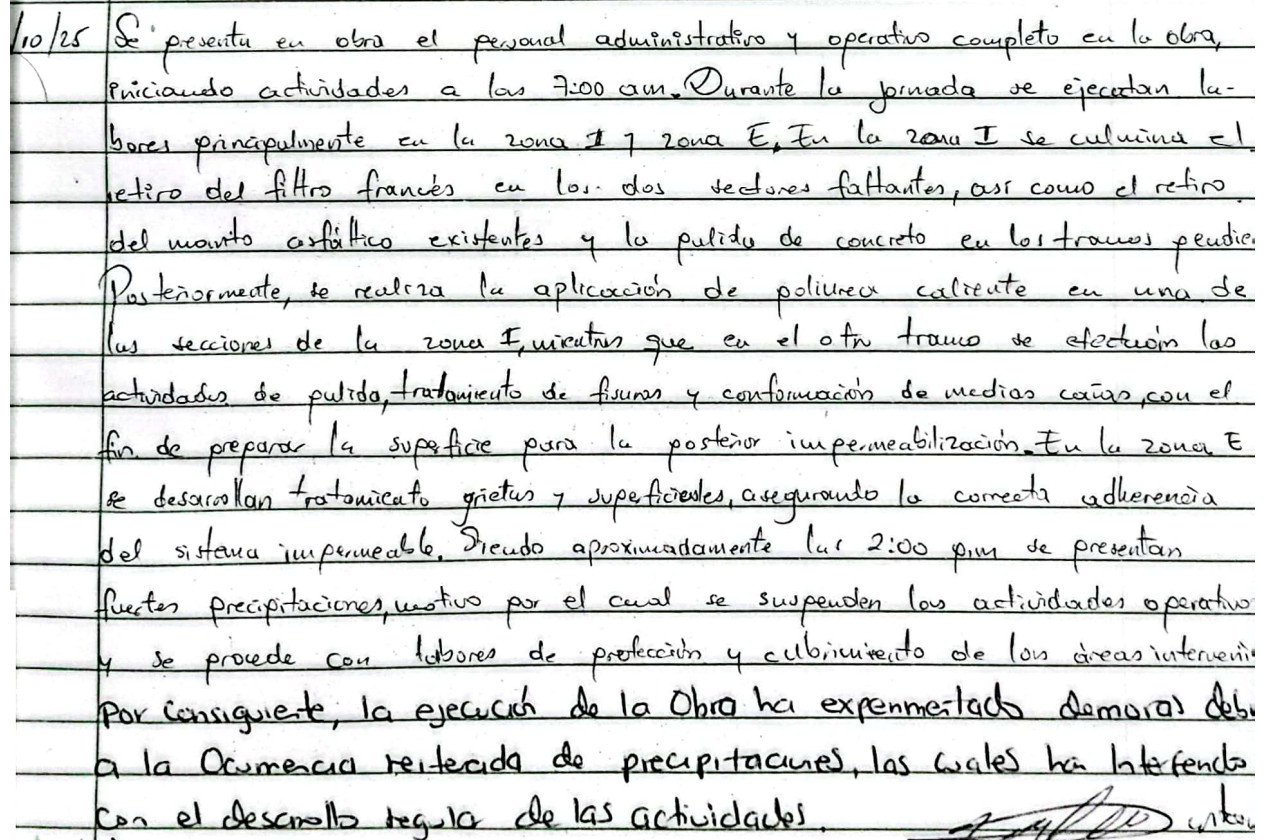 /10/25 Se presenta en obra el personal administrativo y operativo completo en la obra,
iniciando actividades a las 7:00 am. Durante la jornada se ejecutan la-
bores principalmente en la zona I y zona E. En la zona I se culmina el
retiro del filtro francés en los dos sectores faltantes, así como el retiro
del manto asfáltico existentes y la pulida de concreto en los tramos pendie
Posteriormente, se realiza la aplicación de poliurea caliente en una de
las secciones de la zona I, mientras que en el otro tramo se efectúan las
actividades de pulida, tratamiento de fisuras y conformación de medias cañas, con el
fin de preparar la superficie para la posterior impermeabilización. En la zona E
se desarrollan tratamiento grietas y superficiales, asegurando la correcta adherencia
del sistema impermeable. Siendo aproximadamente las 2:00 p.m se presentan
fuertes precipitaciones, motivo por el cual se suspenden las actividades operativo
y se procede con labores de protección y cubrimiento de las áreas interveni
Por consiguiente, la ejecución de la Obra ha experimentado demoras debi
a la Ocurrencia reiterada de precipitaciones, las cuales ha Interferido
con el desarrollo regular de las actividades.